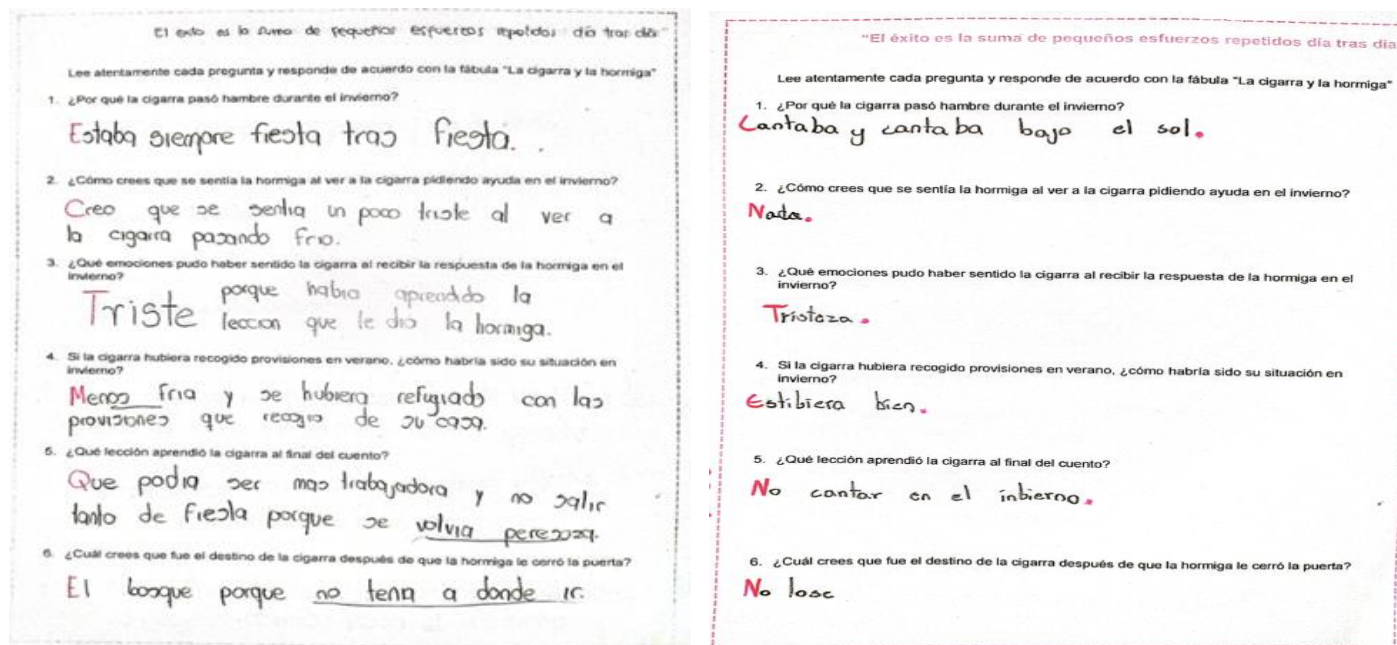 El exito es la suma de pequeños esfuerzos repetidos día tras día"
Lee atentamente cada pregunta y responde de acuerdo con la fábula "La cigarra y la hormiga"
1. ¿Por qué la cigarra pasó hambre durante el invierno?
Estaba siempre fiesta tras fiesta.
2. ¿Cómo crees que se sentía la hormiga al ver a la cigarra pidiendo ayuda en el invierno?
Creo que se sentia un poco triste al ver a
la cigarra pasando frio.
3. ¿Qué emociones pudo haber sentido la cigarra al recibir la respuesta de la hormiga en el
invierno?
Triste porque habia aprendido la
leccion que le dio la hormiga.
4. Si la cigarra hubiera recogido provisiones en verano, ¿cómo habría sido su situación en
invierno?
Menos fria y se hubiera refugiado con las
provisiones que recogio de su casa.
5. ¿Qué lección aprendió la cigarra al final del cuento?
Que podia ser mas trabajadora y no salir
tanto de fiesta porque se volvia perezosa.
6. ¿Cuál crees que fue el destino de la cigarra después de que la hormiga le cerró la puerta?
El bosque porque no tenia a donde ir.
"El éxito es la suma de pequeños esfuerzos repetidos día tras día
Lee atentamente cada pregunta y responde de acuerdo con la fábula "La cigarra y la hormiga"
1. ¿Por qué la cigarra pasó hambre durante el invierno?
Cantaba y cantaba bajo el sol.
2. ¿Cómo crees que se sentía la hormiga al ver a la cigarra pidiendo ayuda en el invierno?
Nada.
3. ¿Qué emociones pudo haber sentido la cigarra al recibir la respuesta de la hormiga en el
invierno?
Tristeza.
4. Si la cigarra hubiera recogido provisiones en verano, ¿cómo habría sido su situación en
invierno?
Estibiera bien.
5. ¿Qué lección aprendió la cigarra al final del cuento?
No cantar en el inbierno.
6. ¿Cuál crees que fue el destino de la cigarra después de que la hormiga le cerró la puerta?
No lose